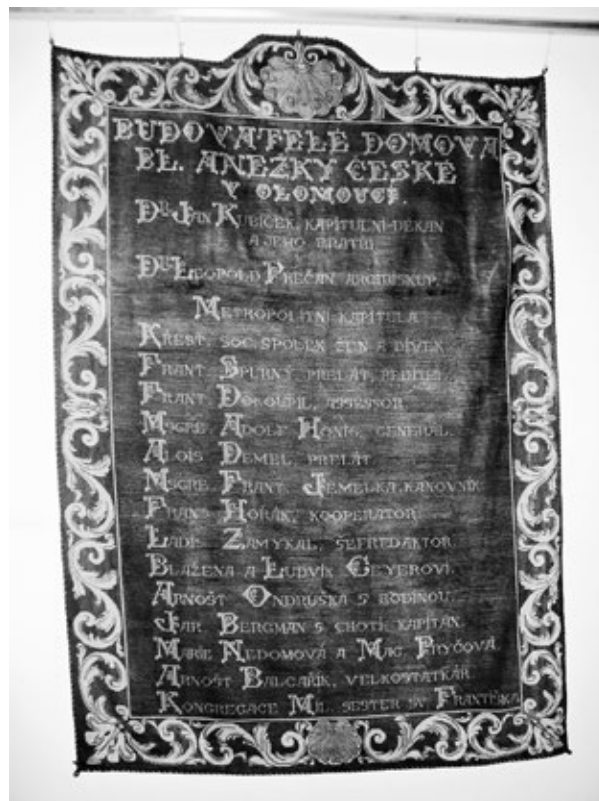 BUDOVATELÉ DOMOVA
BL. ANEŽKY ČESKÉ
V OLOMOUCI.
DR JAN KUBÍČEK, KAPITULNÍ DĚKAN
A JEHO BRATŘI
DR LEOPOLD PREČAN ARCIBISKUP.
METROPOLITNÍ KAPITULA
KŘEST. SOC. SPOLEK ŽEN A DÍVEK
FRANT. SPURNÝ, PRELÁT, ŘEDITEL
FRANT. DOKOUPIL, ASSESSOR
MSGRE ADOLF HÖNIG, GENERÁL.
ALOIS DEMEL, PRELÁT
MSGRE FRANT. JEMELKA, KANOVNÍK
FRANT. HOŘÁK, KOOPERÁTOR
LADIS. ZAMYKAL, ŠÉFREDAKTOR
BLAŽENA A LUDVÍK GEYEROVI.
ARNOŠT ONDRUŠKA S RODINOU.
JAR. BERGMAN S CHOTÍ, KAPITÁN.
MARIE NEDOMOVÁ A MAR. PRYČOVÁ
ARNOŠT BALCAŘÍK, VELKOSTATKÁŘ
KONGREGACE MIL. SESTER SV. FRANTIŠKA